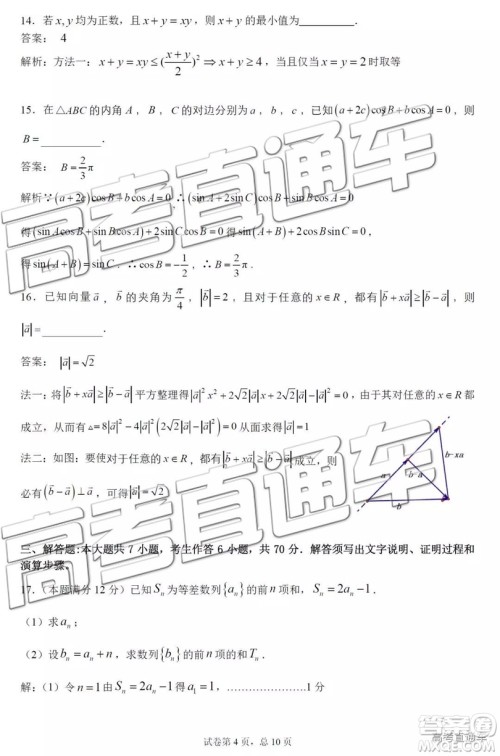 14. 若 x, y 均为正数，且 x + y = xy，则 x + y 的最小值为________．
答案： 4
解析：方法一：x + y = xy ≤ ((x + y)/2)² ⇒ x + y ≥ 4，当且仅当 x = y = 2 时取等
15. 在△ABC 的内角 A，B，C 的对边分别为 a，b，c，已知 (a + 2c)cos B + b cos A = 0，则
B = ________．
答案： B = 2/3 π
解析∵(a + 2c)cos B + b cos A = 0，∴(sin A + 2sin C)cos B + sin B cos A = 0
得(sin A cos B + sin B cos A) + 2sin C cos B = 0 得 sin(A + B) + 2cos B sin C = 0，
得 sin(A + B) = sin C．∴cos B = −1/2，∴B = 2/3 π．
16. 已知向量 a⃗，b⃗ 的夹角为 π/4，|b⃗| = 2，且对于任意的 x ∈ R，都有 |b⃗ + xa⃗| ≥ |b⃗ − a⃗|，则
|a⃗| = ________．
答案： |a⃗| = √2
法一：将 |b⃗ + xa⃗| ≥ |b⃗ − a⃗| 平方整理得 |a⃗|² x² + 2√2 |a⃗| x + 2√2 |a⃗| − |a⃗|² = 0，由于其对任意的 x ∈ R 都
成立，从而有 △ = 8|a⃗|² − 4|a⃗|² (2√2 |a⃗| − |a⃗|²) = 0 从面求得 |a⃗| = 1
法二：如图：要使对于任意的 x ∈ R，都有 |b⃗ + xa⃗| ≥ |b⃗ − a⃗| 成立，则
必有 (b⃗ − a⃗) ⊥ a⃗，可得 |a⃗| = √2
a
b-a
b-xa
b
三、解答题：本大题共 7 小题，考生作答 6 小题，共 70 分．解答须写出文字说明、证明过程和
演算步骤．
17.（本题满分 12 分）已知 Sₙ 为等差数列 {aₙ} 的前 n 项和，Sₙ = 2aₙ − 1．
（1）求 aₙ；
（2）设 bₙ = aₙ + n，求数列 {bₙ} 的前 n 项的和 Tₙ．
解：（1）令 n = 1 由 Sₙ = 2aₙ − 1 得 a₁ = 1，……………1 分
试卷第 4 页，总 10 页
高考直通车
高考直通车